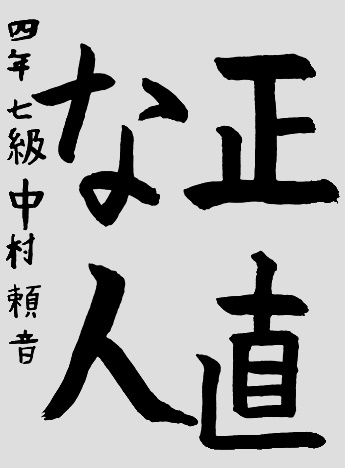 正直
な人
四年七級中村頼音